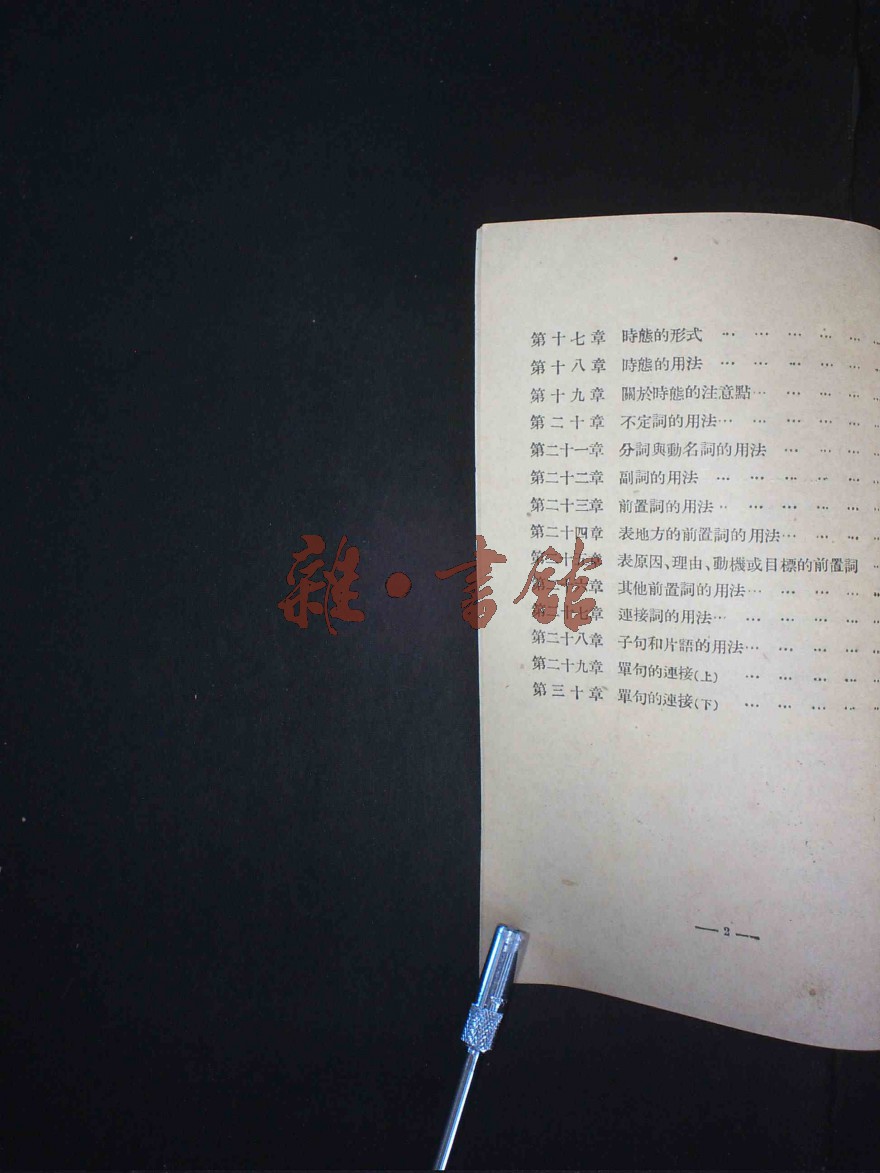 第十七章 時態的形式 … … … … … …
第十八章 時態的用法 … … … … … …
第十九章 關於時態的注意點… … … … …
第二十章 不定詞的用法… … … … … …
第二十一章 分詞與動名詞的用法 … … … …
第二十二章 副詞的用法 … … … … … …
第二十三章 前置詞的用法… … … … … …
第二十四章 表地方的前置詞的用法… … … …
第二十五章 表原因、理由、動機或目標的前置詞 …
第二十六章 其他前置詞的用法… … … … …
第二十七章 連接詞的用法… … … … … …
第二十八章 子句和片語的用法… … … … …
第二十九章 單句的連接(上) … … … … …
第三十章 單句的連接(下) … … … … …
雜·書館
— 2 —